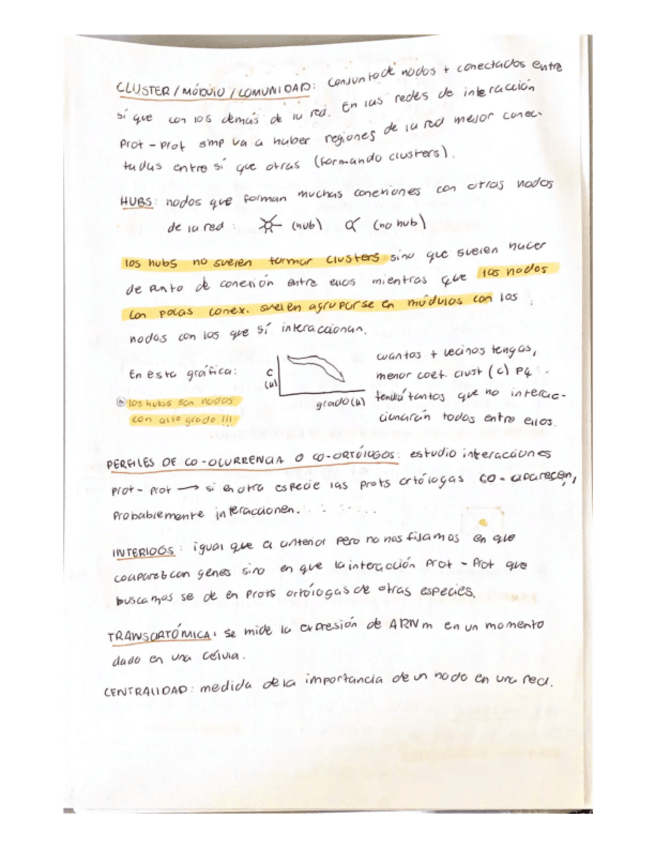 CLUSTER/MÓDULO/COMUNIDAD: conjunto de nodos + conectados entre
sí que con los demás de la red. En las redes de interacción
prot-prot smp va a haber regiones de la red mejor conec-
tadas entre sí que otras (formando clusters).
HUBS: nodos que forman muchas conexiones con otros nodos
de la red: (hub) (no hub)
los hubs no suelen formar clusters sino que suelen hacer
de punto de conexión entre ellos mientras que los nodos
con pocas conex. suelen agruparse en módulos con los
nodos con los que sí interaccionan.
En esta gráfica:
los hubs son nodos
con alto grado !!!
C
(k)
grado(k)
cuantos + vecinos tengas,
menor coef. clust (c) pq
tendrá tantos que no interac-
cionarán todos entre ellos.
PERFILES DE CO-OCURRENCIA O CO-ORTÓLOGOS: estudio interacciones
prot-prot → si en otra especie las prots ortólogas co-aparecen,
probablemente interaccionen.
INTERLOGS: igual que el anterior pero no nos fijamos en que
coaparezcan genes sino en que la interacción prot-prot que
buscamos se dé en prots ortólogas de otras especies.
TRANSCRTÓMICA: se mide la expresión de ARNm en un momento
dado en una célula.
CENTRALIDAD: medida de la importancia de un nodo en una red.